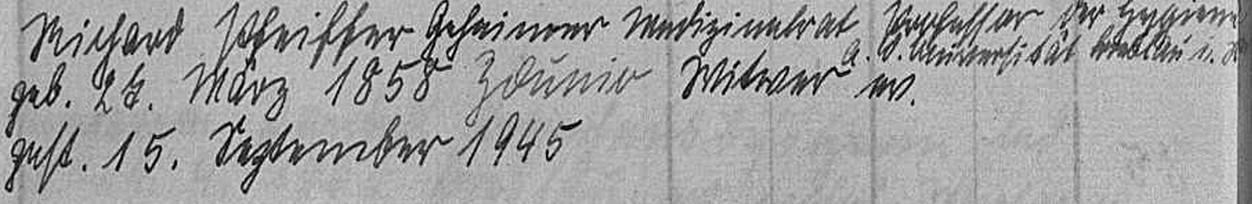 Richard Pfeiffer Geheimer Medizinalrat Professor der Hygiene
a. d. Universität Breslau i. R.
geb. 27. März 1858 Zduny Witwer ev.
gest. 15. September 1945